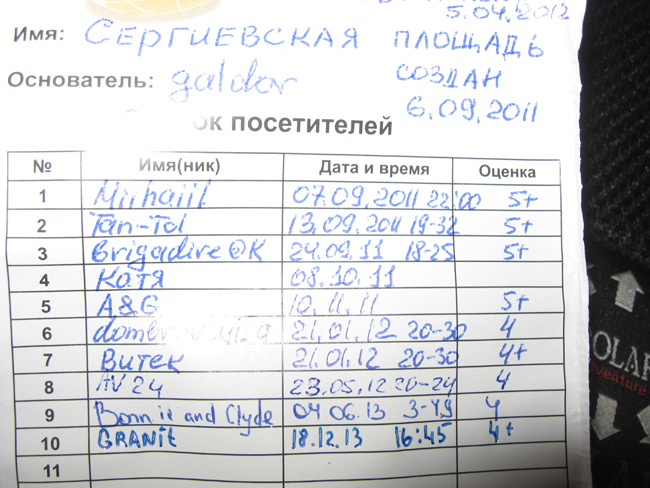 5.04.2012
Имя: СЕРГИЕВСКАЯ ПЛОЩАДЬ
Основатель: galdor СОЗДАН
6.09.2011
ок посетителей
№ Имя(ник) Дата и время Оценка
1 Mihaiil 07.09.2011 22:00 5+
2 Tan-Tol 13.09.2011 19-32 5+
3 Brigadire@K 24.09.11 18-25 5+
4 Катя 08.10.11
5 A&G 10.11.11 5+
6 21.01.12 20-30 4
7 Витек 21.01.12 20-30 4+
8 AV24 23.05.12 20-24 4
9 Bonnie and Clyde 04 06.13 3-49 4
10 GRANIt 18.12.13 16:45 4+
11
OLAR
venture